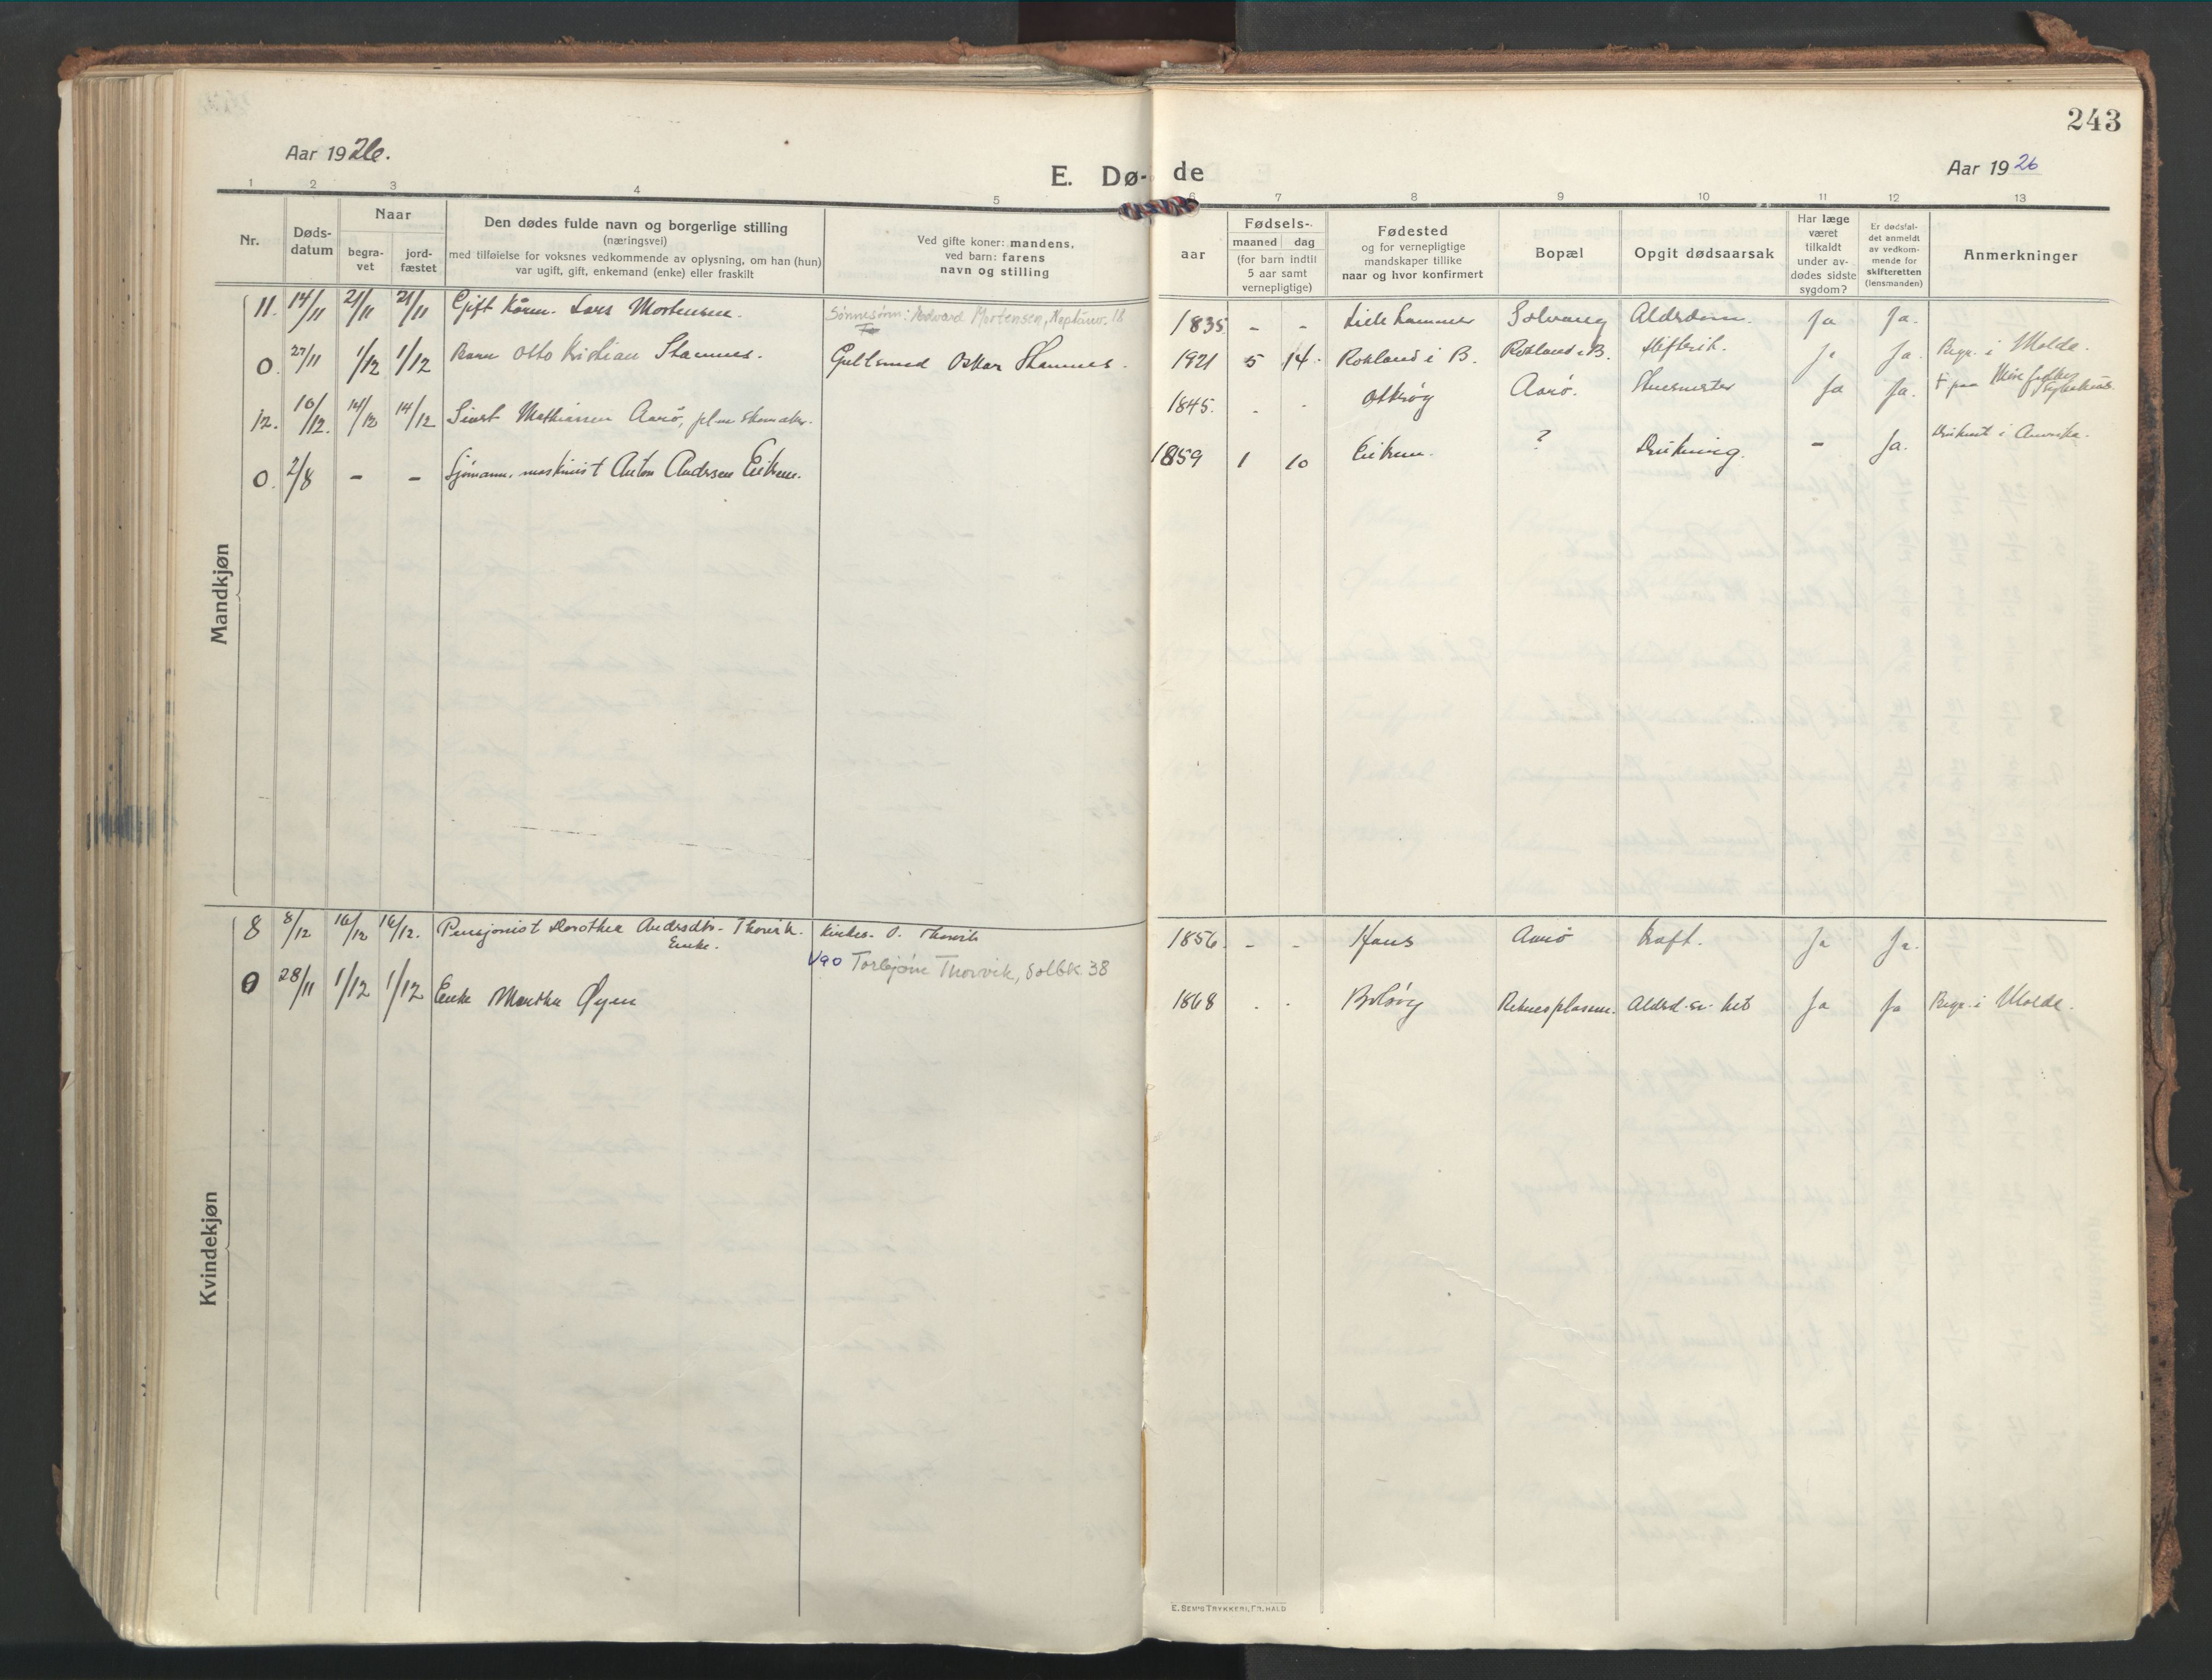 243
Aar 1926.
E. Dø-
de
Aar 1926
1 2 3 4 5 6 7 8 9 10 11 12 13
Nr.
Døds-
datum
Naar
begra-
vet
jord-
fæstet
Den dødes fulde navn og borgerlige stilling
(næringsvei)
med tilføielse for voksnes vedkommende av oplysning, om han (hun)
var ugift, gift, enkemand (enke) eller fraskilt
Ved gifte koner: mandens,
ved barn: farens
navn og stilling
Fødsels-
aar
maaned dag
(for barn indtil
5 aar samt
vernepligtige)
Fødested
og for vernepligtige
mandskaper tillike
naar og hvor konfirmert
Bopæl
Opgit dødsaarsak
Har læge
været
tilkaldt
under av-
dødes sidste
sygdom?
Er dødsfal-
det anmeldt
av vedkom-
mende for
skifteretten
(lensmanden)
Anmerkninger
Mandkjøn
11. 14/11 21/11 21/11 Gift Lars Mortensen. Sønnesønn: Edvard Mortensen, 18 1835 - - Lillehammer Solvang Alderdom. Ja Ja.
0. 27/11 1/12 1/12 Barn Otto Kristian Stamnes. Gullsmed Oskar Stamnes. 1921 5 14. i B. Ja Ja. Begr. i Molde.
12. 10/12. 14/12 14/12 Sivert Mathiassen Aarø, 1845. - - Otterøy Aarø. Ja Ja.
0. 2/8 - - Sjømann, maskinist Anton Andersen Eikrem. 1859 1 10 Eikrem. ? Drukning. - Ja. Druknet i Amerika.
Kvindekjøn
8 8/12 16/12 16/12. Pensjonist Dorothea Andersdtr. Thorvik. Enke. O. Thorvik 1856. - - Aarø Kræft. Ja Ja.
V90 Torbjørn Thorvik, Solbk. 38
0 28/11 1/12 1/12 Enke Martha Øyen 1868 - - Bolsøy Ja Ja Begr. i Molde.
E. SEM'S TRYKKERI, FR.HALD